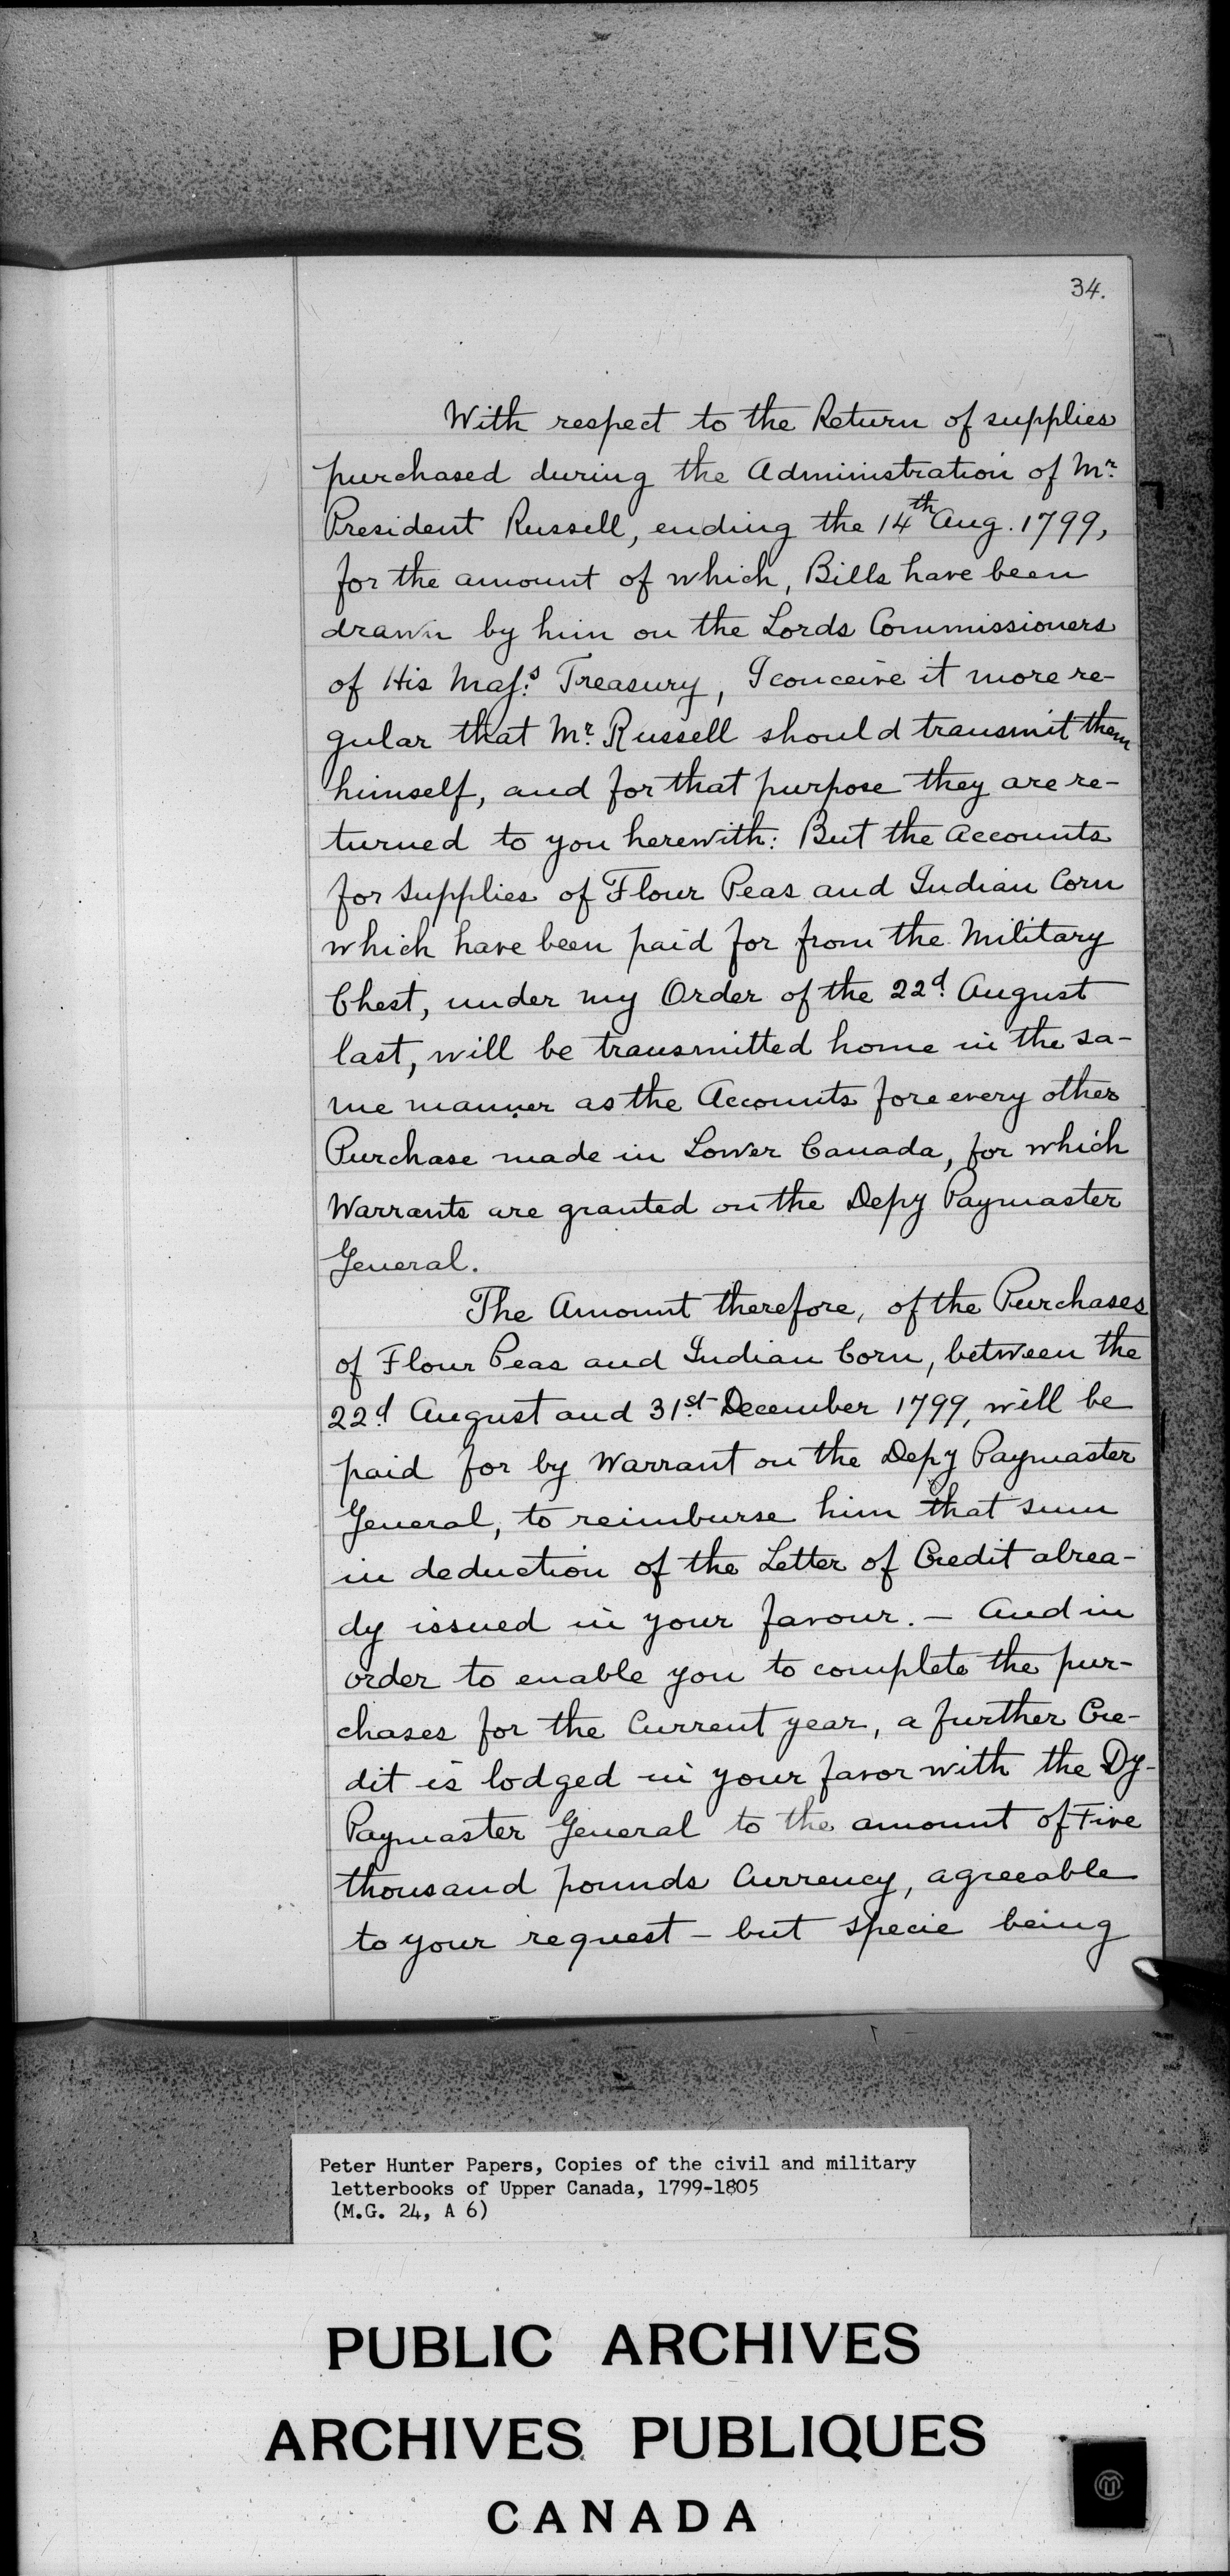 34.
With respect to the Return of supplies
purchased during the Administration of Mr.
President Russell, ending the 14th Aug. 1799,
for the amount of which, Bills have been
drawn by him on the Lords Commissioners
of His Maj.s Treasury, I conceive it more re-
gular that Mr. Russell should transmit them
himself, and for that purpose they are re-
turned to you herewith: But the Accounts
for supplies of Flour Peas and Indian Corn
which have been paid for from the Military
Chest, under my Order of the 22d. August
last, will be transmitted home in the sa-
me manner as the Accounts fore every other
Purchase made in Lower Canada, for which
Warrants are granted on the Depy Paymaster
General.
The Amount therefore, of the Purchases
of Flour Peas and Indian Corn, between the
22d. August and 31st. December 1799, will be
paid for by Warrant on the Depy Paymaster
General, to reimburse him that sum
in deduction of the Letter of Credit alrea-
dy issued in your favour. - And in
order to enable you to complete the pur-
chases for the Current year, a further Cre-
dit is lodged in your favor with the Dy-
Paymaster General to the amount of Five
thousand pounds Currency, agreeable
to your request - but specie being
Peter Hunter Papers, Copies of the civil and military
letterbooks of Upper Canada, 1799-1805
(M.G. 24, A 6)
PUBLIC ARCHIVES
ARCHIVES PUBLIQUES
CANADA